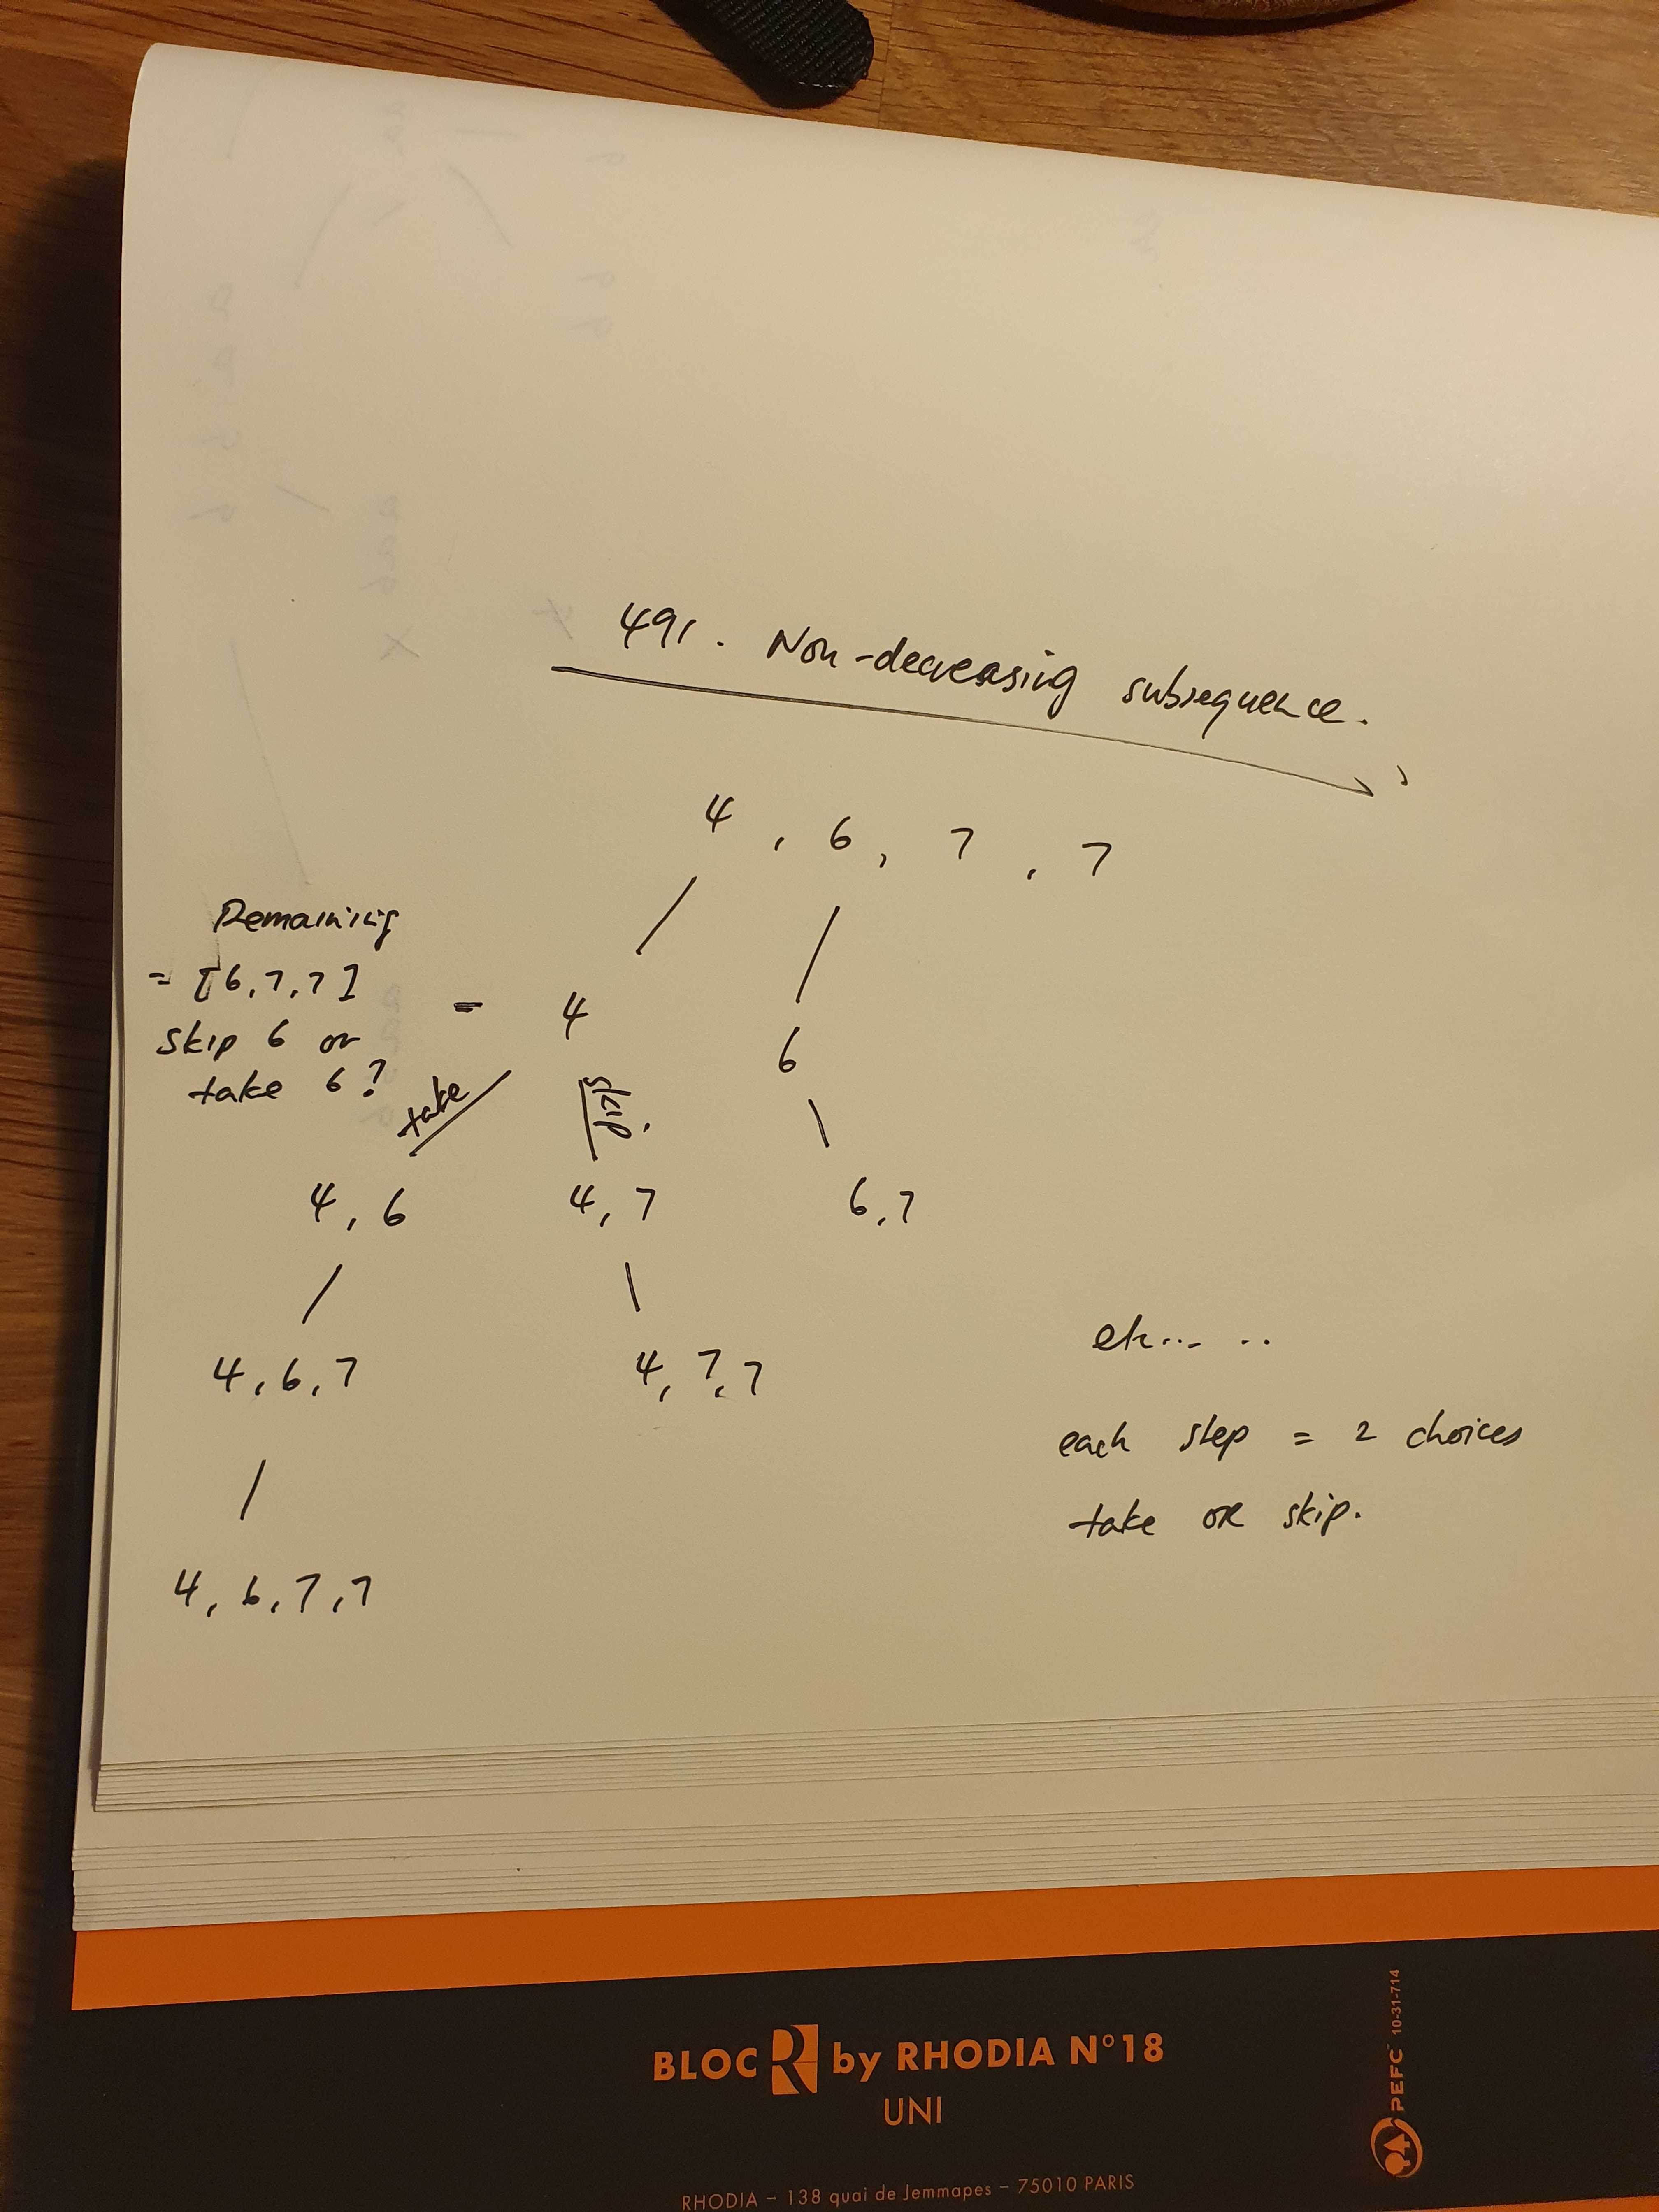 491. Non-decreasing subsequence.
4, 6, 7, 7
Remaining
= [6,7,7]
skip 6 or
take 6?
- 4
6
take
skip.
4, 6
4, 7
6,7
4,6,7
4,7,7
etc... ..
each step = 2 choices
take OR skip.
4,6,7,7
BLOC R by RHODIA N°18
UNI
RHODIA – 138 quai de Jemmapes – 75010 PARIS
PEFC 10-31-714